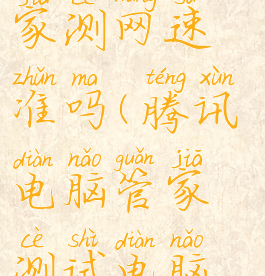 jiā cè wǎng sù
家测网速
zhǔn ma téng xùn
准吗(腾讯
diàn nǎo guǎn jiā
电脑管家
cè shì diàn nǎo
测试电脑